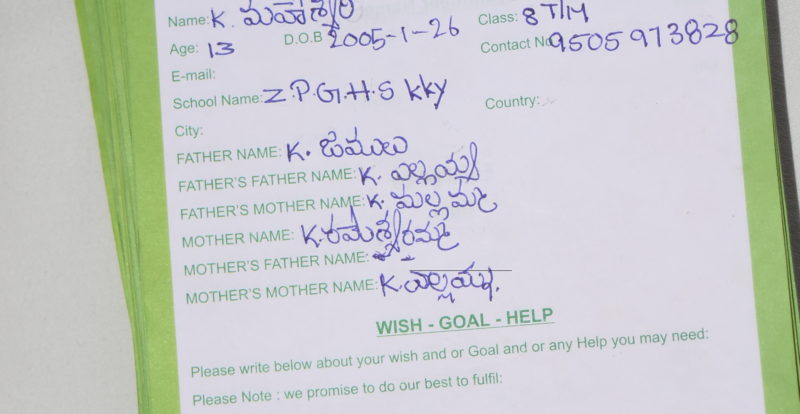 Name: K. మహేశ్వరి Class: 8 T/M
Age: 13 D.O.B 2005-1-26 Contact No 9505973828
E-mail:
School Name: Z.P.G.H.S KKY Country:
City:
FATHER NAME: K. జములు
FATHER'S FATHER NAME: K. ఎల్లయ్య
FATHER'S MOTHER NAME: K. మల్లమ్మ
MOTHER NAME: K. రమేశ్వరమ్మ
MOTHER'S FATHER NAME:
MOTHER'S MOTHER NAME: K. ఎల్లమ్మ.
WISH - GOAL - HELP
Please write below about your wish and or Goal and or any Help you may need:
Please Note : we promise to do our best to fulfil: